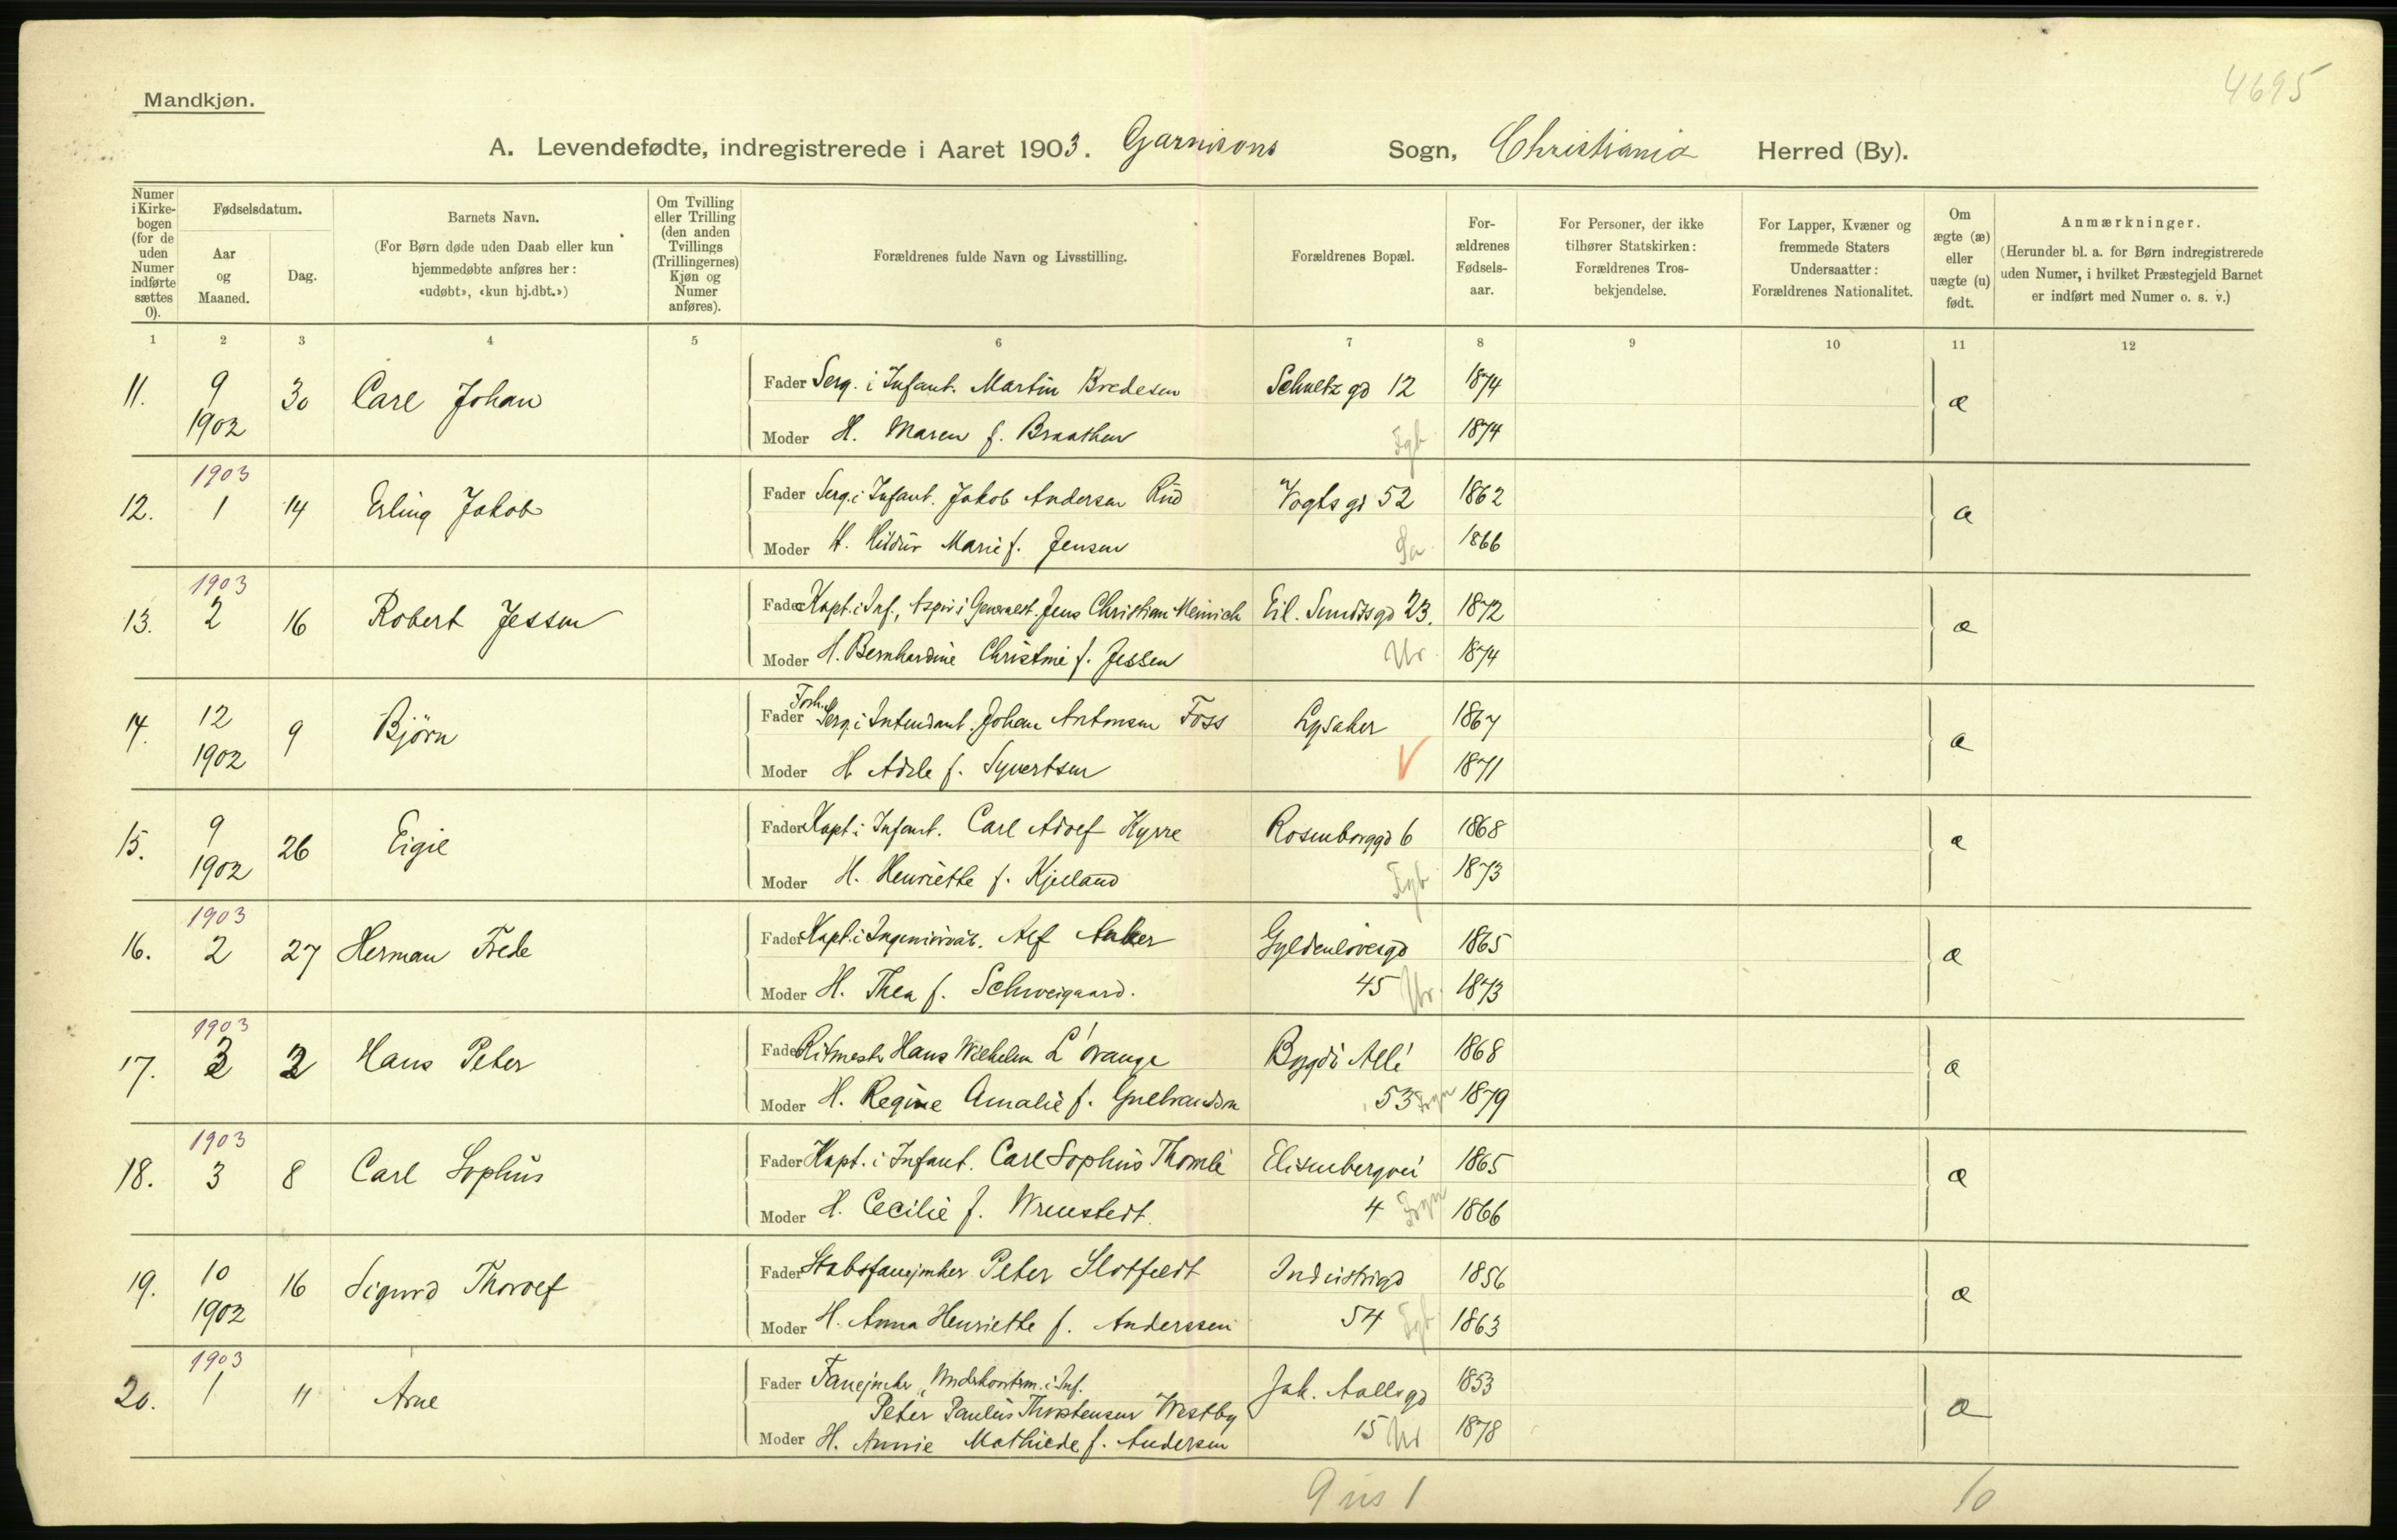 4695
Mandkjøn.
A. Levendefødte, indregistrerede i Aaret 1903. Garnisons Sogn, Christiania Herred (By).
Numer i Kirke-bogen (for de uden Numer indførte sættes 0).
Fødselsdatum.
Aar og Maaned.
Dag.
Barnets Navn.
(For Børn døde uden Daab eller kun hjemmedøbte anføres her: «udøbt», «kun hj.dbt.»)
Om Tvilling eller Trilling (den anden Tvillings (Trillingernes) Kjøn og Numer anføres).
Forældrenes fulde Navn og Livsstilling.
Forældrenes Bopæl.
For-ældrenes Fødsels-aar.
For Personer, der ikke tilhører Statskirken: Forældrenes Tros-bekjendelse.
For Lapper, Kvæner og fremmede Staters Undersaatter: Forældrenes Nationalitet.
Om ægte (æ) eller uægte (u) født.
Anmærkninger.
(Herunder bl. a. for Børn indregistrerede uden Numer, i hvilket Præstegjeld Barnet er indført med Numer o. s. v.)
1 2 3 4 5 6 7 8 9 10 11 12
11. 9 30 Carl Johan Fader Serg. i Infant. Martin Bredesen Schultz gd 12 1874 æ
1902 Moder H. Maren f. Braathen Fgb 1874
1903
12. 1 14 Erling Jakob Fader Serg. i Infant. Jakob Andersen Rud Vogts gd 52 1862 æ
Moder H. Hildur Marie f. Jensen Sa 1866
1903
13. 2 16 Robert Jessen Fader Kapt. i Inf., Aspir. i Generalst. Jens Christian Meinich Eil. Sundts gd 23. 1872 æ
Moder H. Bernhardine Christine f. Jessen Ur 1874
14. 12 9 Bjørn Fader Forh. Serg. i Intendant. Johan Antonsen Foss Lysaker 1867 æ
1902 Moder H. Adele f. Syvertsen V 1871
15. 9 26 Eigil Fader Kapt. i Infant. Carl Adolf Kyrre Rosenborggd 6 1868 æ
1902 Moder H. Henriette f. Kjelland Fgb 1873
1903
16. 2 27 Herman Frede Fader Kapt. i Ingeniørvåb. Alf Anker Gyldenløvesgd 1865 æ
Moder H. Thea f. Schweigaard. 45 Ur 1873
1903
17. 3 2 Hans Peter Fader Ritmestr Hans Wilhelm L'orange Bygdø Allé 1868 æ
Moder H. Regine Amalie f. Gulbrandsen 53 Frgn 1879
1903
18. 3 8 Carl Sophus Fader Kapt. i Infant. Carl Sophus Thomle Elisenbergvei 1865 æ
Moder H. Cecilie f. Wrenstedt. 4 Frgn 1866
19. 10 16 Sigurd Thorolf Fader Stabsfanejunker Peter Slotfeldt Industrigd 1856 æ
1902 Moder H. Anna Henriette f. Anderssen 54 Fgb 1863
1903
20. 1 11 Arne Fader Fanejunker, Underkontrm. i Inf. Jak. Aallsgd 1853 æ
Peter Paulus Thorstensen Westby
Moder H. Annie Mathilde f. Andersen 15 Ur 1878
9 us 1 10